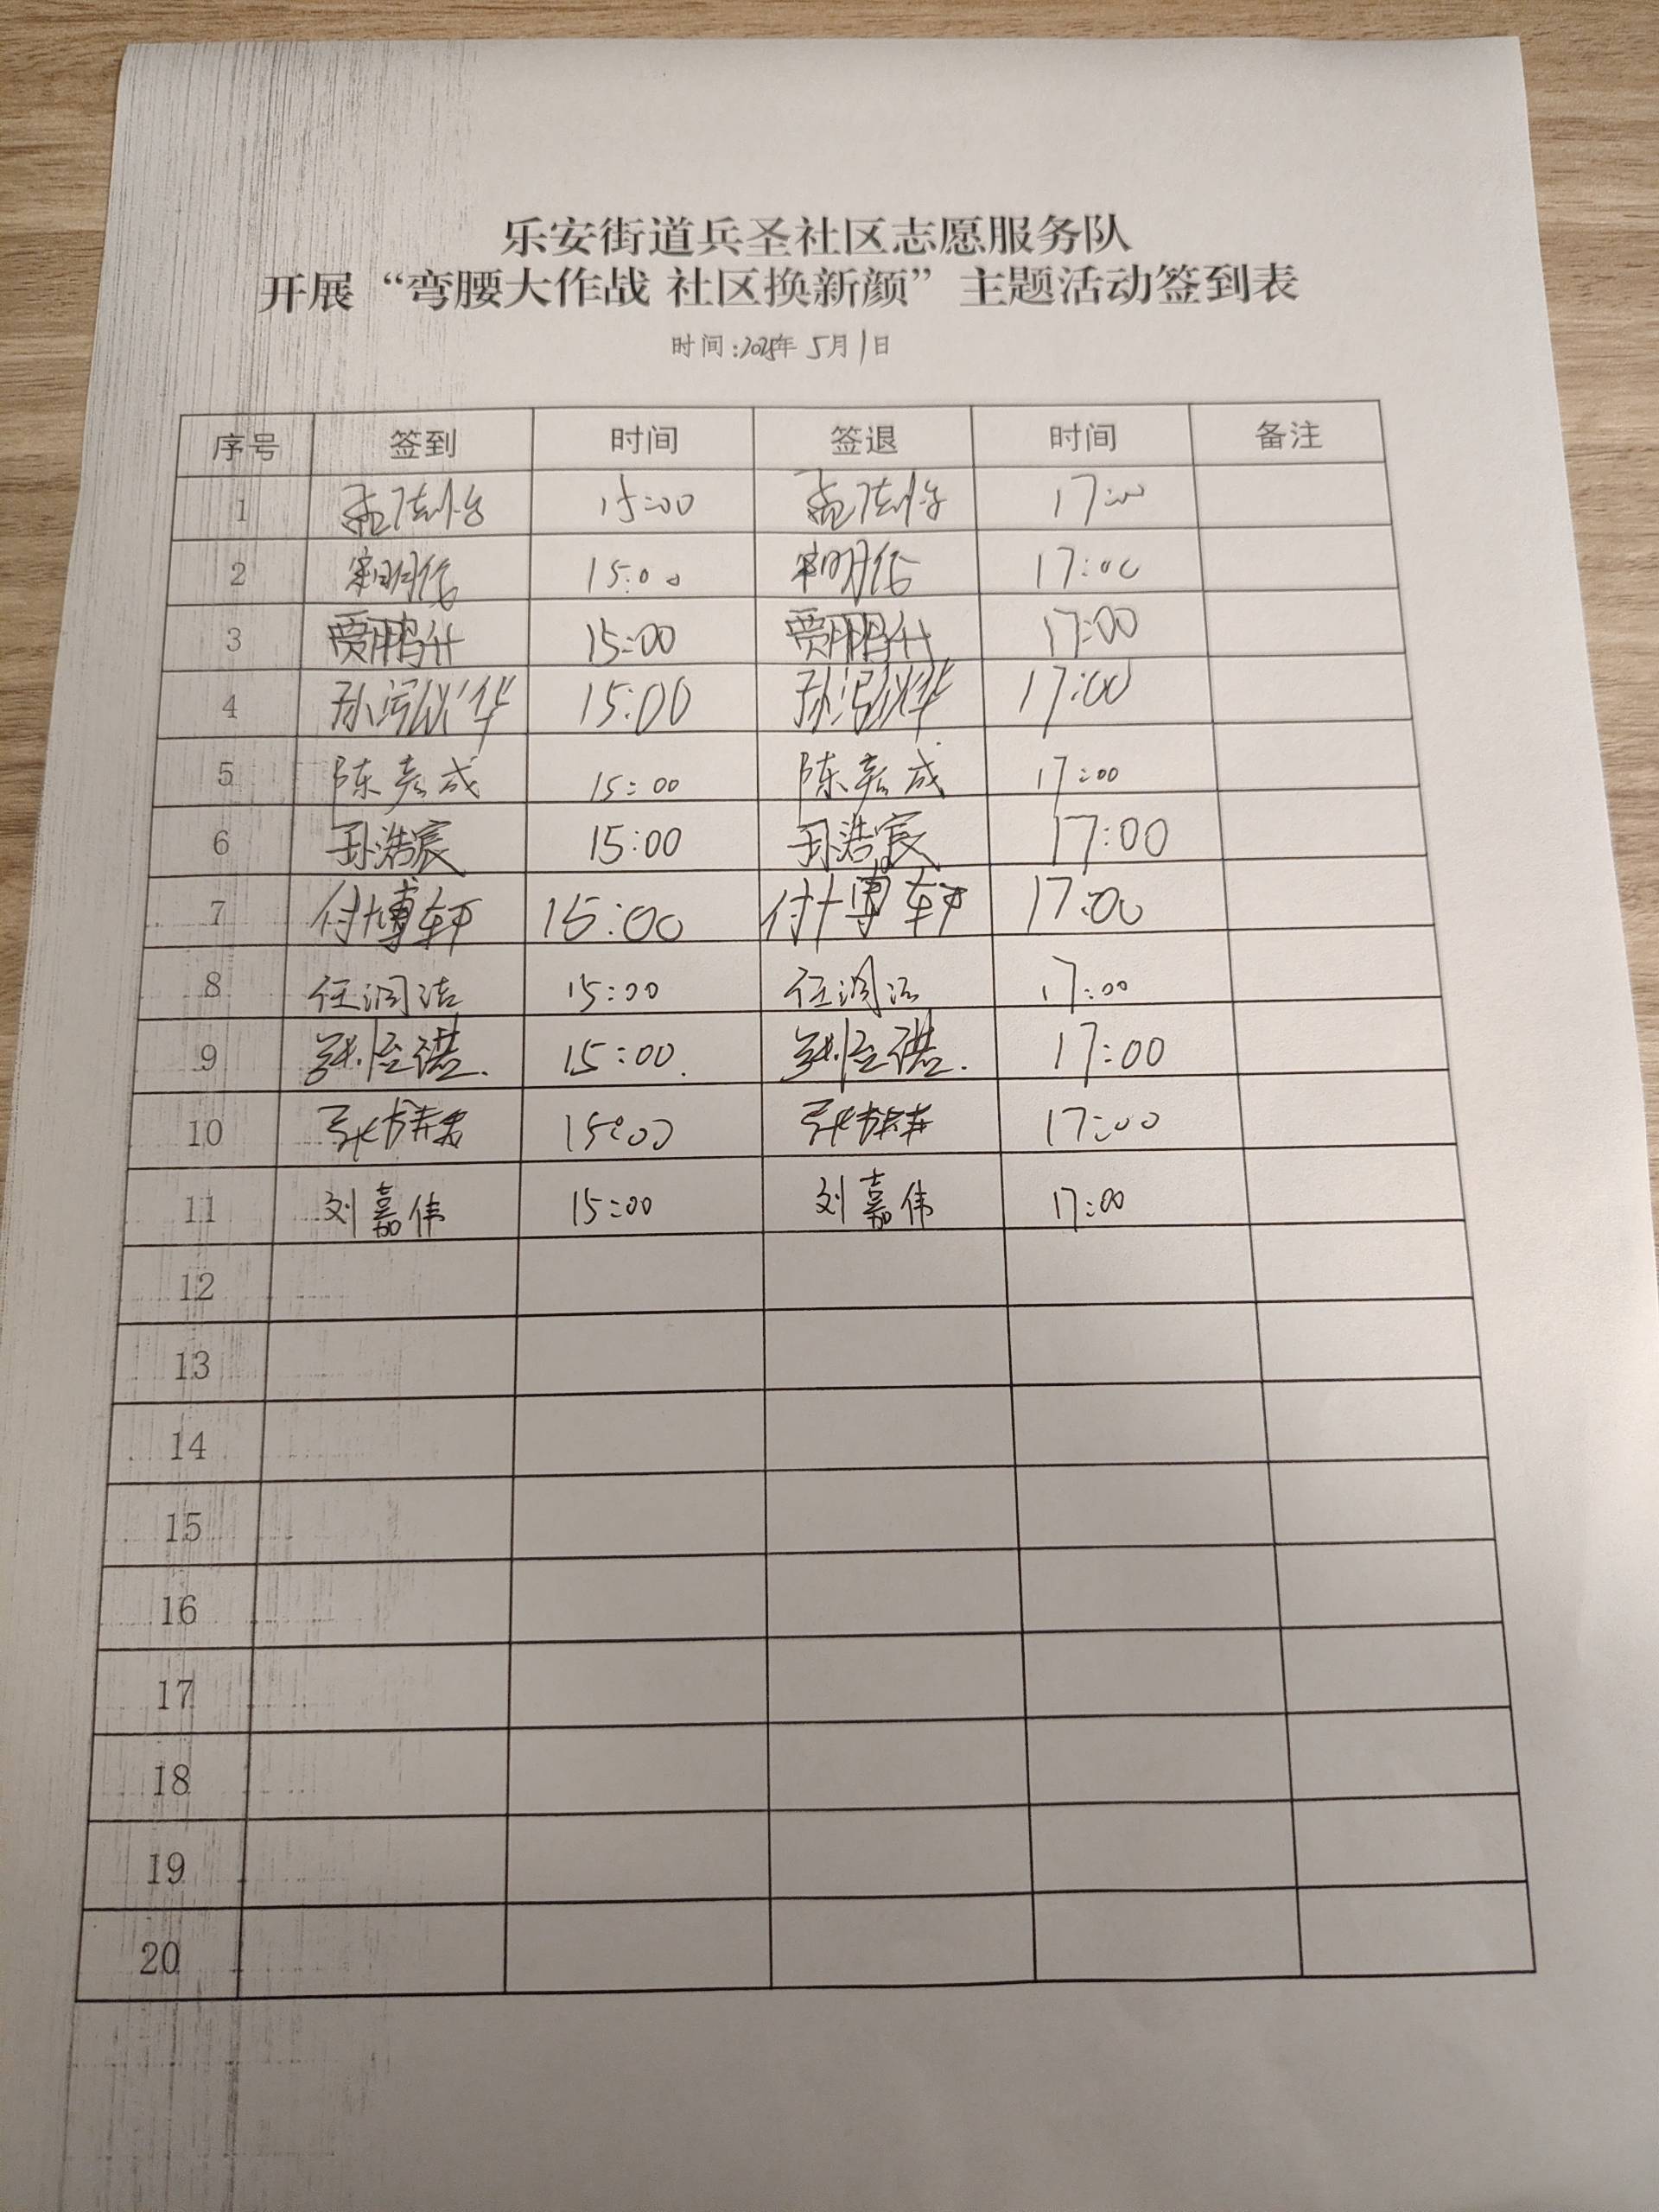 乐安街道兵圣社区志愿服务队
开展“弯腰大作战 社区换新颜”主题活动签到表
时间:2025年 5月1日
序号 签到 时间 签退 时间 备注
1 孟 15:00 孟 17:00
2 15:00 17:00
3 贾鹏升 15:00 贾鹏升 17:00
4 孙泓 华 15:00 孙泓 华 17:00
5 陈彦成 15:00 陈彦成 17:00
6 孙浩宸 15:00 孙浩宸 17:00
7 付博轩 15:00 付博轩 17:00
8 任润洁 15:00 任润洁 17:00
9 15:00. 17:00
10 张 15:00 张 17:00
11 刘嘉伟 15:00 刘嘉伟 17:00
12
13
14
15
16
17
18
19
20